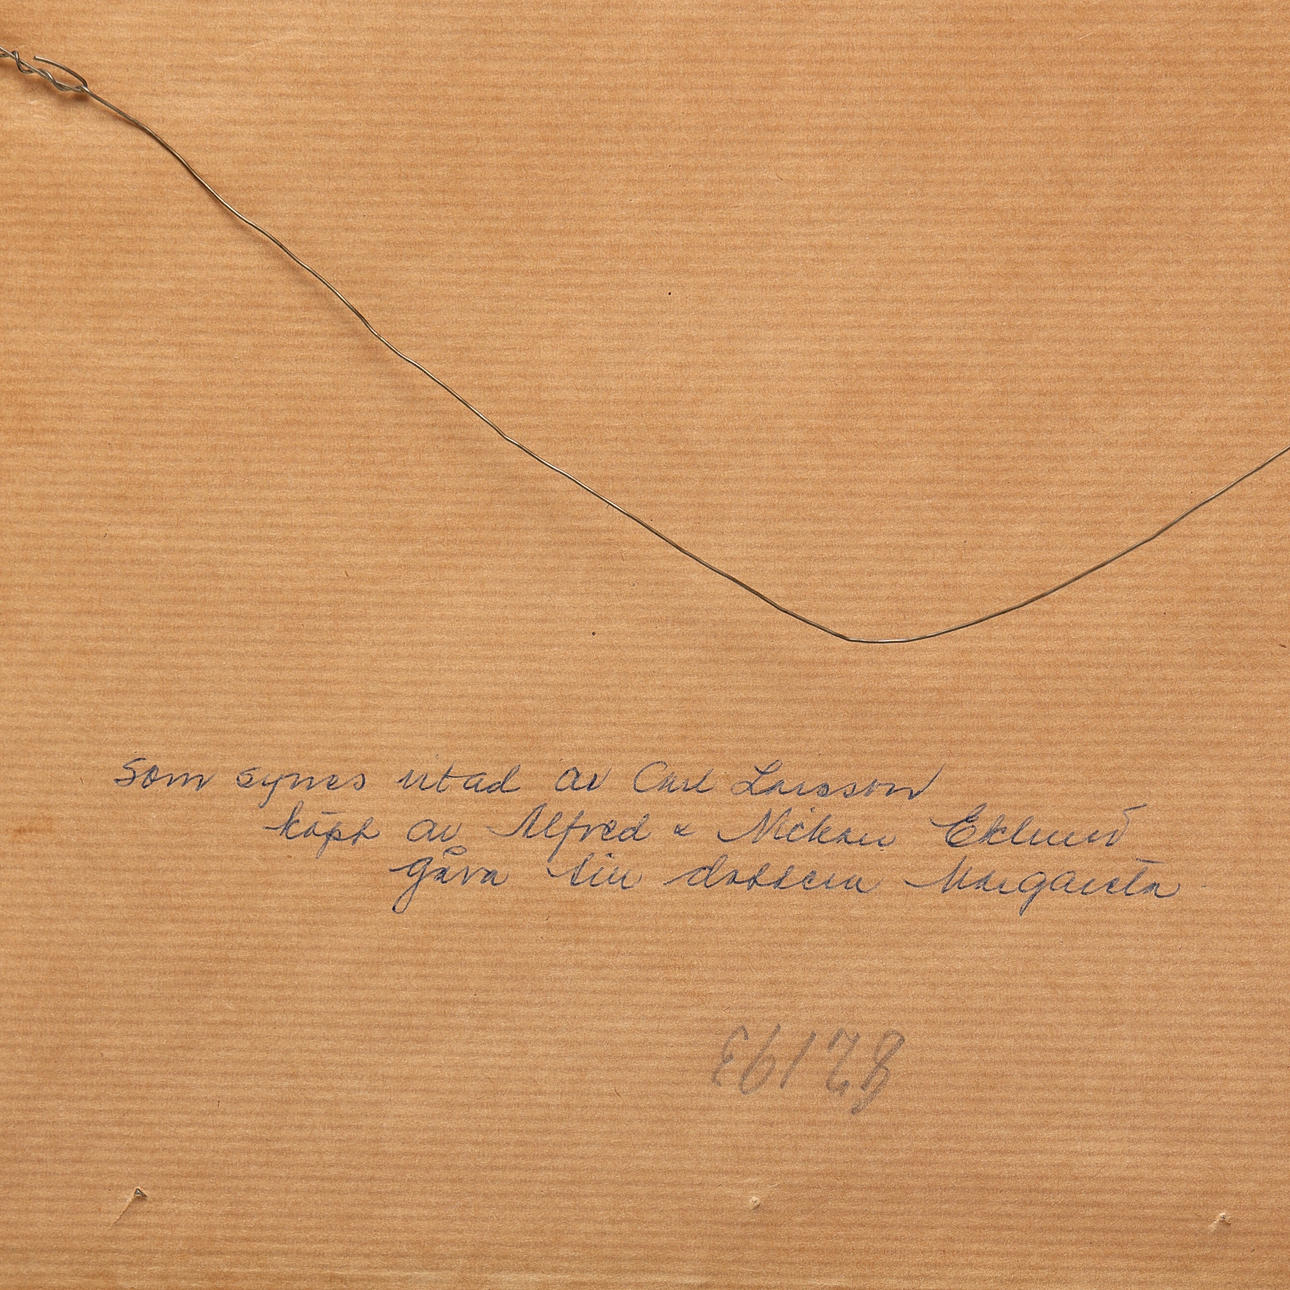 som synes ritad av Carl Larsson
köpt av Alfred & Mickan Eklund
gåva till dottern Margareta